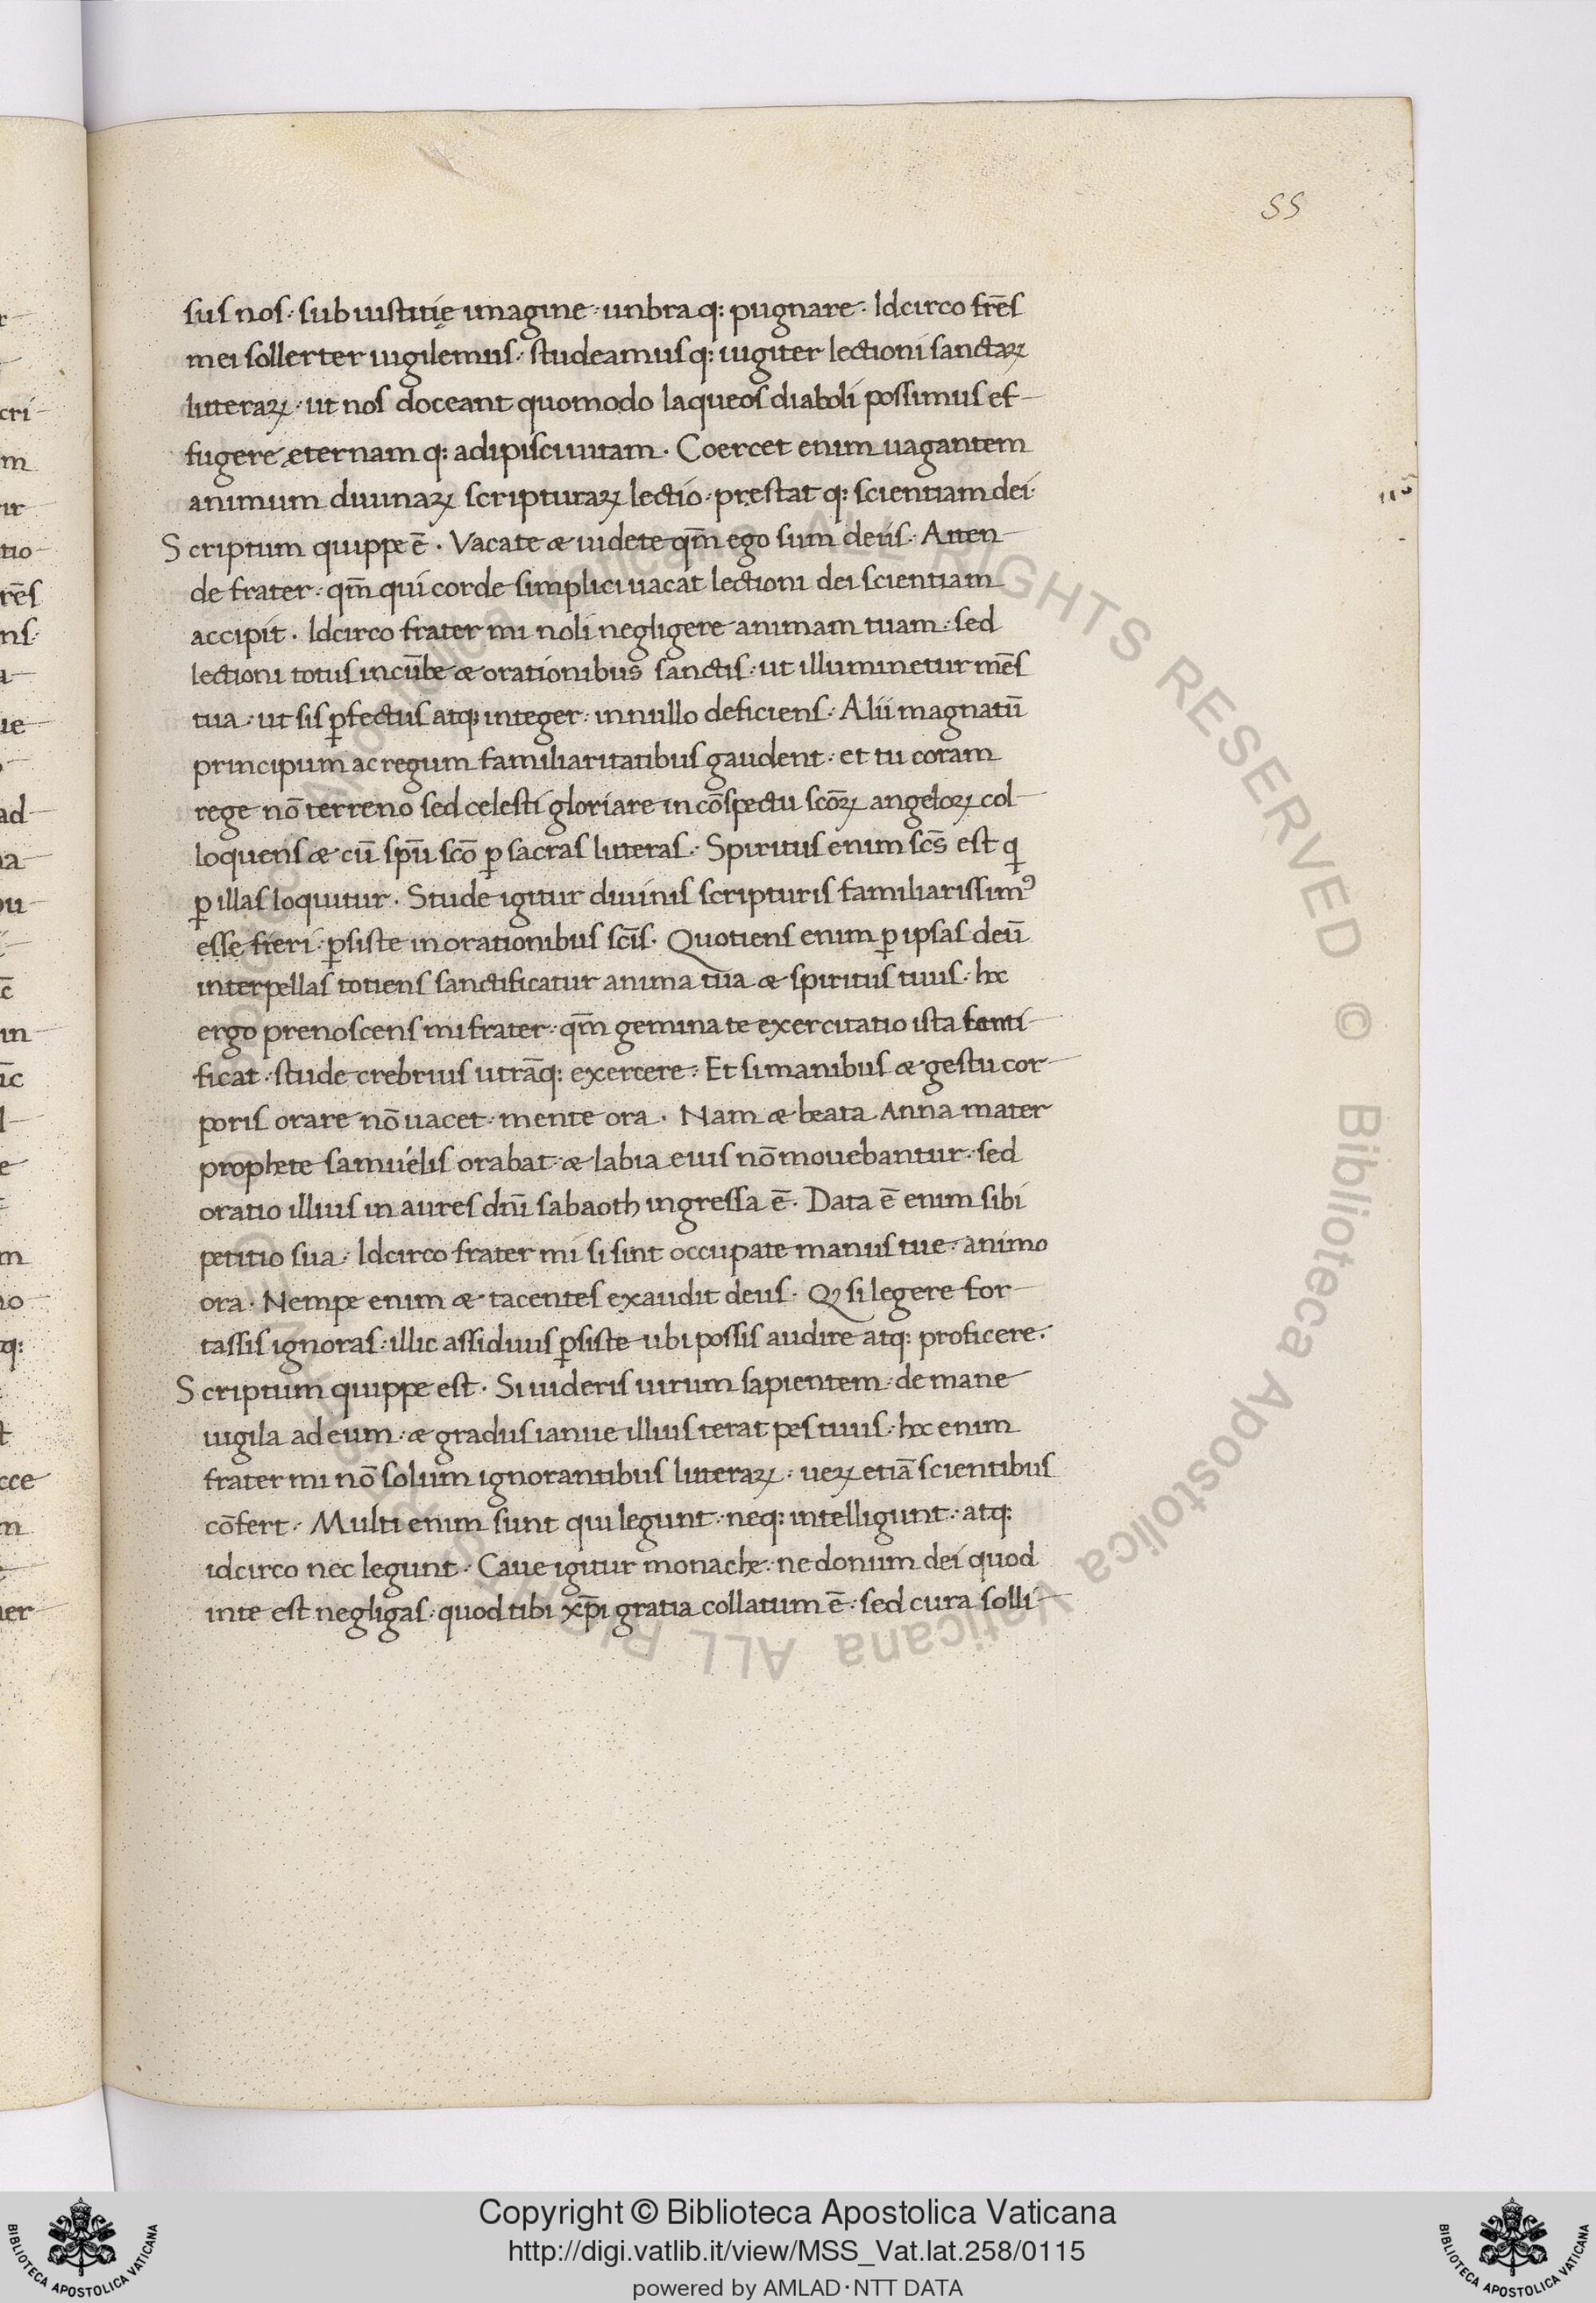 55
sus nos · sub iustitię imagine · unbraq: pugnare · Idcirco fr̄es
mei sollerter uigilemus · studeamusq: iugiter lectioni sanctaꝝ
litteraꝝ · ut nos doceant quomodo laqueos diaboli possimus ef-
fugere ęternamq: adipisci uitam · Coercet enim uagantem
animum diuinaꝝ scripturaꝝ lectio · prestatq: scientiam dei ·
Scriptum quippe ē · Vacate & uidete qm̄ ego sum deus · Atten-
de frater · qm̄ qui corde simplici uacat lectioni dei scientiam
accipit · Idcirco frater mi noli negligere animam tuam · sed
lectioni totus incūbe & orationibus sanctis · ut illuminetur mēs
tua · ut sis ꝑfectus atq: integer · in nullo deficiens · Alii magnatū
principum ac regum familiaritatibus gaudent · et tu coram
rege nō terreno sed celesti gloriare in cōspectu scōꝝ angeloꝝ col-
loquens & cū spū scō ꝑ sacras litteras · Spiritus enim scs̄ est q̇
ꝑ illas loquitur · Stude igitur diuinis scripturis familiarissimꝰ
esse fieri · ꝑsiste in orationibus scīs · Quotiens enim ꝑ ipsas deū
interpellas totiens sanctificatur anima tua & spiritus tuus · hoc
ergo prenoscens mi frater · qm̄ gemina te exercitatio ista sancti-
ficat · stude crebrius utrāq: exercere · Et si manibus & gestu cor-
poris orare nō uacet · mente ora · Nam & beata Anna mater
prophete samuélis orabat · & labia eius nō mouebantur · sed
oratio illius in aures dn̄i sabaoth ingressa ē · Data ē enim sibi
petitio sua · Idcirco frater mi si sint occupate manus tue · animo
ora · Nempe enim & tacentes exaudit deus · Qꝫ si legere for-
tassis ignoras · illic assiduus ꝑsiste ubi possis audire atq: proficere ·
Scriptum quippe est · Si uideris uirum sapientem · de mane
uigila ad eum · & gradus ianue illius terat pes tuus · hoc enim
frater mi nō solum ignorantibus litteraꝝ · ueꝝ etiā scientibus
cōfert · Multi enim sunt qui legunt · neq: intelligunt · atq:
idcirco nec legunt · Caue igitur monache · ne donum dei quod
in te est negligas · quod tibi xp̄i gratia collatum ē · sed cura solli-
Copyright © Biblioteca Apostolica Vaticana
http://digi.vatlib.it/view/MSS_Vat.lat.258/0115
powered by AMLAD·NTT DATA